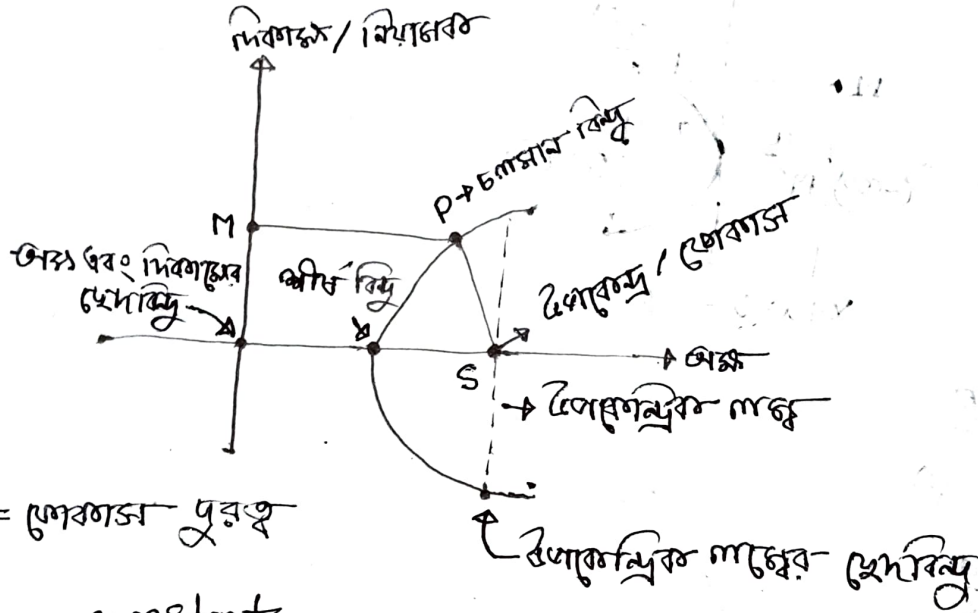 দিকাক্ষ / নিয়ামক
P → চলমান বিন্দু
M
অক্ষ এবং দিকাক্ষের
ছেদবিন্দু
শীর্ষ বিন্দু
উপকেন্দ্র / ফোকাস
S
অক্ষ
→ উপকেন্দ্রিক লম্ব
= ফোকাস দুরত্ব
উপকেন্দ্রিক লম্বের ছেদবিন্দু